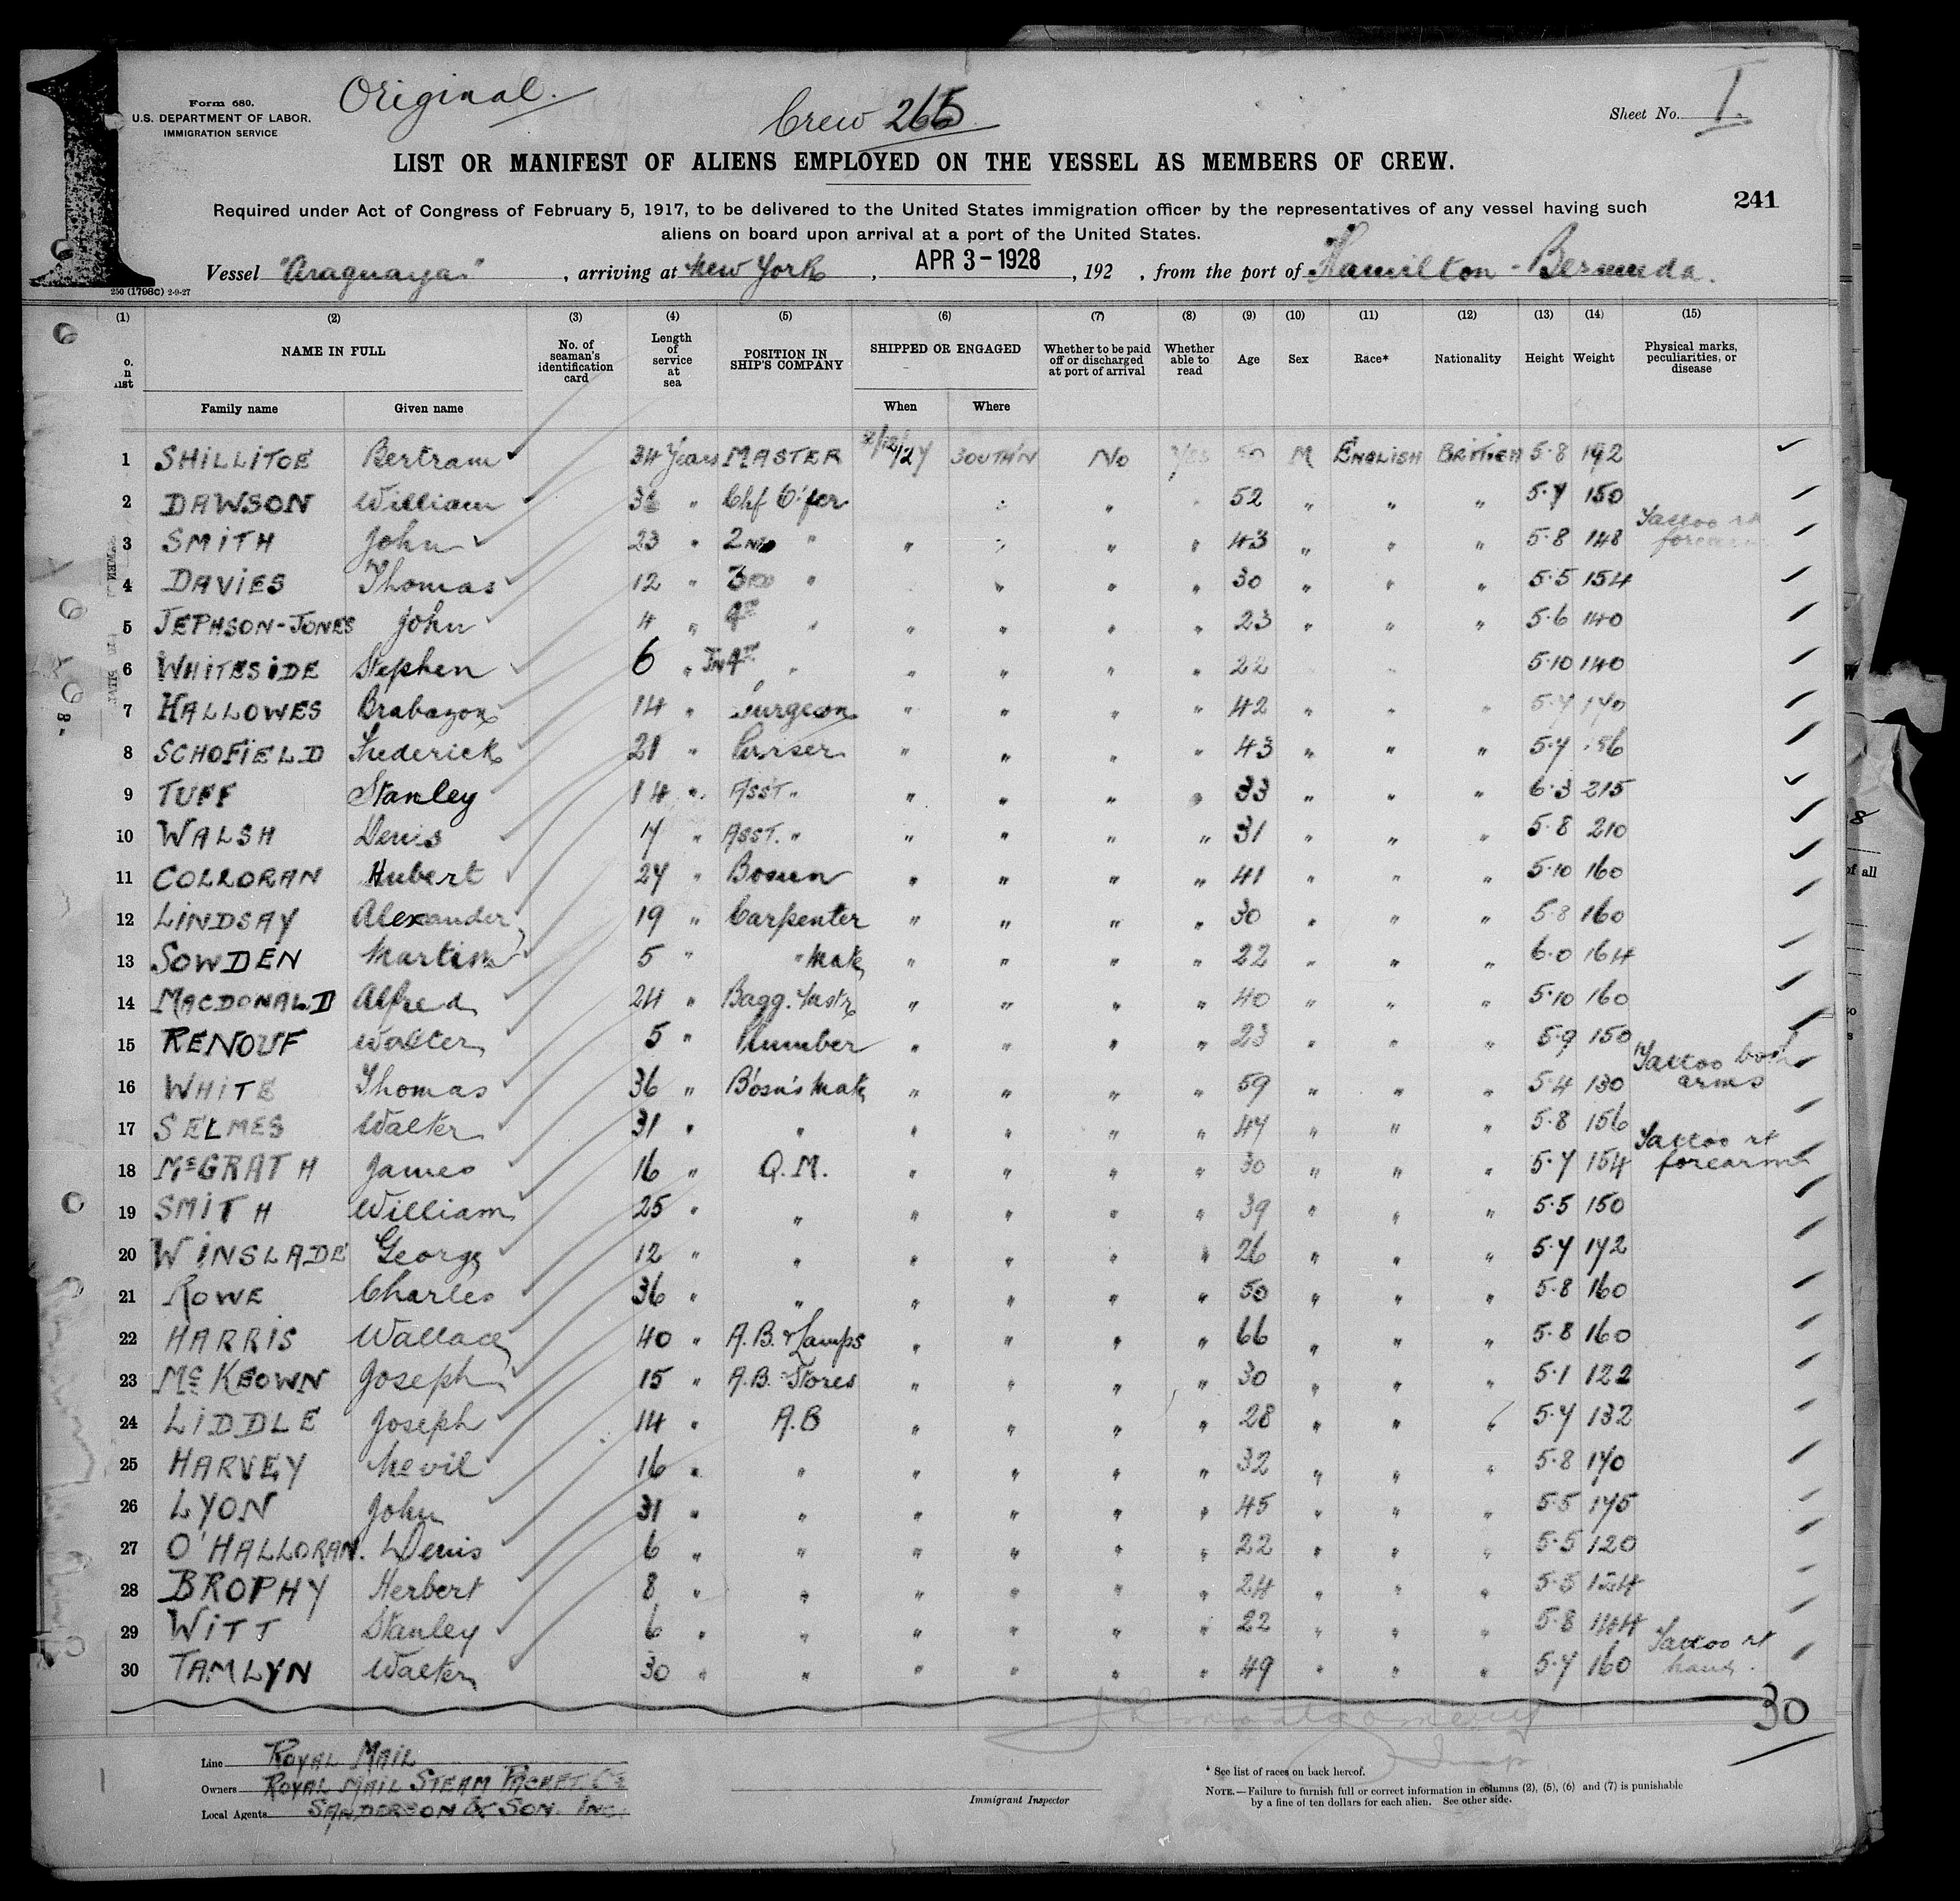 Original.
Crew 265
Form 680.
U.S. DEPARTMENT OF LABOR.
IMMIGRATION SERVICE
Sheet No. I.
LIST OR MANIFEST OF ALIENS EMPLOYED ON THE VESSEL AS MEMBERS OF CREW.
241
Required under Act of Congress of February 5, 1917, to be delivered to the United States immigration officer by the representatives of any vessel having such
aliens on board upon arrival at a port of the United States.
Vessel "Araguaya" , arriving at New York , APR 3-1928 , 192 , from the port of Hamilton - Bermuda.
250 (1798C) 2-9-27
(1) (2) (3) (4) (5) (6) (7) (8) (9) (10) (11) (12) (13) (14) (15)
NAME IN FULL
Family name Given name
No. of seaman's identification card
Length of service at sea
POSITION IN SHIP'S COMPANY
SHIPPED OR ENGAGED
When Where
Whether to be paid off or discharged at port of arrival
Whether able to read
Age Sex Race* Nationality Height Weight
Physical marks, peculiarities, or disease
1 SHILLITOE Bertram 34 Years MASTER SOUTH'N No Yes 50 M ENGLISH BRITISH 5.8 192
2 DAWSON William Chf O'fer " 52 " " " 5.7 150
3 SMITH John 23 " 2ND " " " " " 43 " " " 5.8 148 Tattoo rt forearm
4 DAVIES Thomas 12 " 3RD " " " " 30 " " " 5.5 154
5 JEPHSON-JONES John 4 " 4TH " " " " " 23 " " " 5.6 140
6 WHITESIDE Stephen 6 " Jn 4TH " " " " " 22 5.10 140
7 HALLOWES Brabazon 14 " Surgeon " " " " 42 " " " 5.7 170
8 SCHOFIELD Frederick 21 " Purser " " " " 43 " " " 5.7 186
9 TUFF Stanley 14 " ASST " " " " " 33 " " " 6.3 215
10 WALSH Denis 7 " ASST. " " " " " 31 " " " 5.8 210
11 COLLORAN Hubert 27 " Bosun " " " " 41 " " " 5.10 160
12 LINDSAY Alexander 19 " Carpenter " " " " 30 " " " 5.8 160
13 SOWDEN Martin 5 " " Mate " " " " 22 " " " 6.0 164
14 MACDONALD Alfred 24 " Bagg. Mastr " " " " 40 " " " 5.10 160
15 RENOUF Walter 5 " Plumber " " " " 23 " " " 5.9 150
16 WHITE Thomas 36 " Bosn's Mate " " " " 59 " " " 5.4 130 Tattoo both arms
17 SELMES Walter 31 " " " " " " 47 " " " 5.8 156
18 McGRATH James 16 " Q.M. " " " " 30 " " " 5.7 154 Tattoo rt forearm
19 SMITH William 25 " " " " " " 39 " " " 5.5 150
20 WINSLADE George 12 " " " " " " 26 " " " 5.7 172
21 ROWE Charles 36 " " " " " " 50 " " " 5.8 160
22 HARRIS Wallace 40 " A.B. & Lamps " " " " 66 " " " 5.8 160
23 McKEOWN Joseph 15 " A.B. Stores " " " " 30 " " " 5.1 122
24 LIDDLE Joseph 14 " A.B " " " " 28 " " " 5.7 132
25 HARVEY Nevil 16 " " " " " " 32 " " " 5.8 170
26 LYON John 31 " " " " " " 45 " " " 5.5 175
27 O'HALLORAN. Denis 6 " " " " " " 22 " " " 5.5 120
28 BROPHY Herbert 8 " " " " " " 24 " " " 5.5 124
29 WITT Stanley 6 " " " " " " 22 " " " 5.8 144
30 TAMLYN Walter 30 " " " " " " 49 " " " 5.7 160 Tattoo rt hand.
30
Line ROYAL MAIL
Owners ROYAL MAIL STEAM PACKET Co
Local Agents SANDERSON & SON. INC.
Immigrant Inspector
* See list of races on back hereof.
NOTE.—Failure to furnish full or correct information in columns (2), (5), (6) and (7) is punishable
by a fine of ten dollars for each alien. See other side.